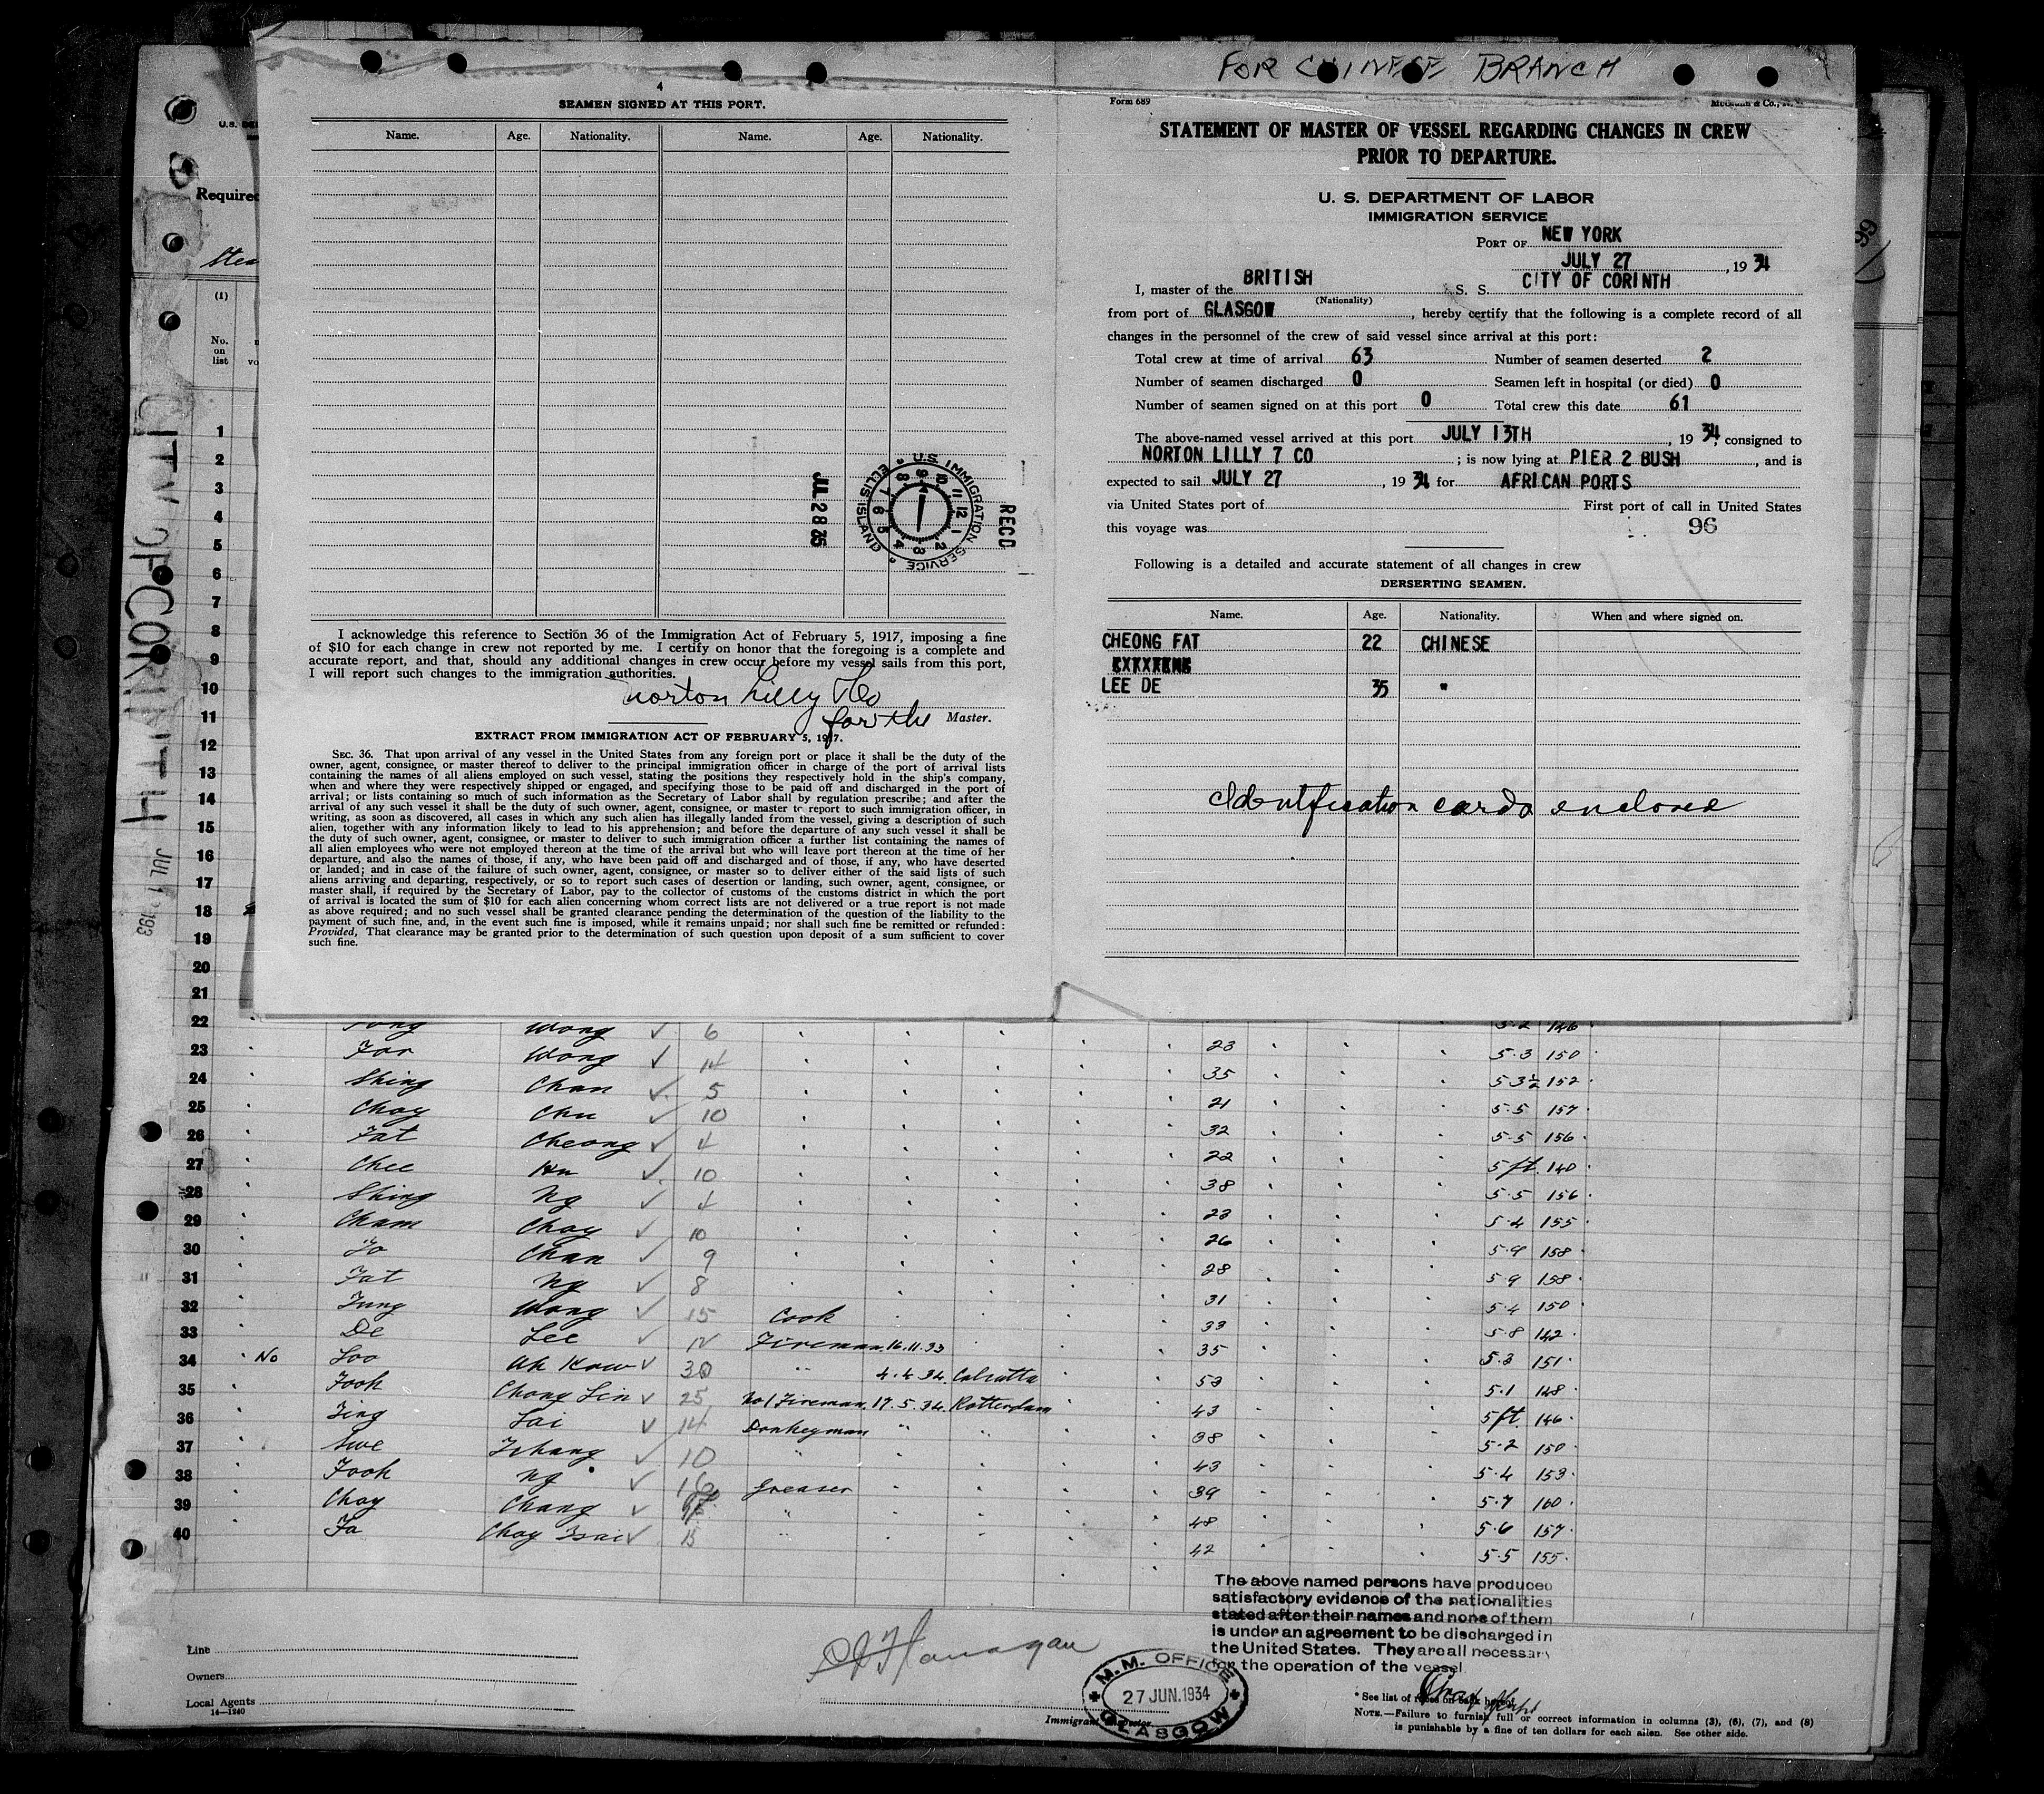 FOR CHINESE BRANCH
4
SEAMEN SIGNED AT THIS PORT.
Name. Age. Nationality. Name. Age. Nationality.
I acknowledge this reference to Section 36 of the Immigration Act of February 5, 1917, imposing a fine
of $10 for each change in crew not reported by me. I certify on honor that the foregoing is a complete and
accurate report, and that, should any additional changes in crew occur before my vessel sails from this port,
I will report such changes to the immigration authorities.
norton Lilly & Co
for the Master.
EXTRACT FROM IMMIGRATION ACT OF FEBRUARY 5, 1917.
SEC. 36. That upon arrival of any vessel in the United States from any foreign port or place it shall be the duty of the
owner, agent, consignee, or master thereof to deliver to the principal immigration officer in charge of the port of arrival lists
containing the names of all aliens employed on such vessel, stating the positions they respectively hold in the ship's company,
when and where they were respectively shipped or engaged, and specifying those to be paid off and discharged in the port of
arrival; or lists containing so much of such information as the Secretary of Labor shall by regulation prescribe; and after the
arrival of any such vessel it shall be the duty of such owner, agent, consignee, or master to report to such immigration officer, in
writing, as soon as discovered, all cases in which any such alien has illegally landed from the vessel, giving a description of such
alien, together with any information likely to lead to his apprehension; and before the departure of any such vessel it shall be
the duty of such owner, agent, consignee, or master to deliver to such immigration officer a further list containing the names of
all alien employees who were not employed thereon at the time of the arrival but who will leave port thereon at the time of her
departure, and also the names of those, if any, who have been paid off and discharged and of those, if any, who have deserted
or landed; and in case of the failure of such owner, agent, consignee, or master so to deliver either of the said lists of such
aliens arriving and departing, respectively, or so to report such cases of desertion or landing, such owner, agent, consignee, or
master shall, if required by the Secretary of Labor, pay to the collector of customs of the customs district in which the port
of arrival is located the sum of $10 for each alien concerning whom correct lists are not delivered or a true report is not made
as above required; and no such vessel shall be granted clearance pending the determination of the question of the liability to the
payment of such fine, and, in the event such fine is imposed, while it remains unpaid; nor shall such fine be remitted or refunded:
Provided, That clearance may be granted prior to the determination of such question upon deposit of a sum sufficient to cover
such fine.
RECD
U.S. IMMIGRATION SERVICE
ELLIS ISLAND
JUL 28 35
Form 689
STATEMENT OF MASTER OF VESSEL REGARDING CHANGES IN CREW
PRIOR TO DEPARTURE.
U. S. DEPARTMENT OF LABOR
IMMIGRATION SERVICE
PORT OF NEW YORK
JULY 27, 19 34
I, master of the BRITISH S. S. CITY OF CORINTH
(Nationality)
from port of GLASGOW, hereby certify that the following is a complete record of all
changes in the personnel of the crew of said vessel since arrival at this port:
Total crew at time of arrival 63 Number of seamen deserted 2
Number of seamen discharged 0 Seamen left in hospital (or died) 0
Number of seamen signed on at this port 0 Total crew this date 61
The above-named vessel arrived at this port JULY 13TH, 19 34, consigned to
NORTON LILLY 7 CO; is now lying at PIER 2 BUSH, and is
expected to sail JULY 27, 19 34 for AFRICAN PORTS
via United States port of First port of call in United States
this voyage was 96
Following is a detailed and accurate statement of all changes in crew
DERSERTING SEAMEN.
Name. Age. Nationality. When and where signed on.
CHEONG FAT 22 CHINESE
LEE DE 35 "
Identification cards enclosed
Required
(1)
No. on list
CITY OF CORINTH
1
2
3
4
5
6
7
8
9
10
11
12
13
14
15
16
17
18
19
20
21
22 Wong 6 146
23 Wong 14 23 5.3 150
24 Shing Chan 5 35 5 3½ 152
25 Choy Chu 10 21 5.5 157
26 Fat Cheong 4 32 5.5 156
27 Chee 10 22 5 ft. 140
28 Shing Ng 4 38 5.5 156
29 Cham Choy 10 23 5.4 155
30 Chan 9 26 158
31 Fat Ng 8 28 5.9 158
32 Wong 15 Cook 31 5.4 150
33 De Lee Fireman 16.11.33 33 5.8 142
34 No Loo Ah Kow 30 " 4.4.34. Calcutta 35 5.3 151
35 Fook Chong Lin 25 No 1 Fireman 17.5.34. Rotterdam 53 5.1 128
36 Lai 14 Donkeyman " " 43 5 ft. 146
37 10 " 38 5.2 150
38 Fook Ng 16 Greaser 43 5.4 153
39 Choy Chang " 39 5.7 160
40 Choy 15 " 48 5.6 157
42 5.5 155
The above named persons have produced
satisfactory evidence of the nationalities
stated after their names and none of them
is under an agreement to be discharged in
the United States. They are all necessary
for the operation of the vessel
Line
Owners
Local Agents
14—1240
Flanagan
Immigrant Inspector
M.M. OFFICE
27 JUN. 1934
GLASGOW
* See list of races on back hereof.
NOTE.—Failure to furnish full or correct information in columns (3), (6), (7), and (8)
is punishable by a fine of ten dollars for each alien. See other side.